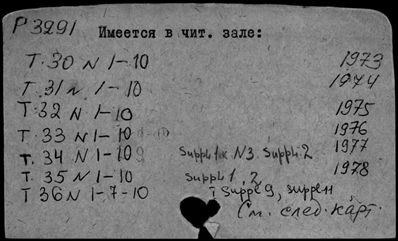 Р 3291
Имеется в чит. зале:
Т. 30 N 1-10 1973
Т. 31 N 1-10 1974
Т. 32 N 1-10 1975
Т. 33 N 1-10 1976
Т. 34 N 1-10 Suppl.1 к N3. Suppl. 2 1977
Т. 35 N 1-10 Suppl 1, 2 1978
Т 36 N 1-7-10 Suppl 9, Suppl 11
См. след. карт.